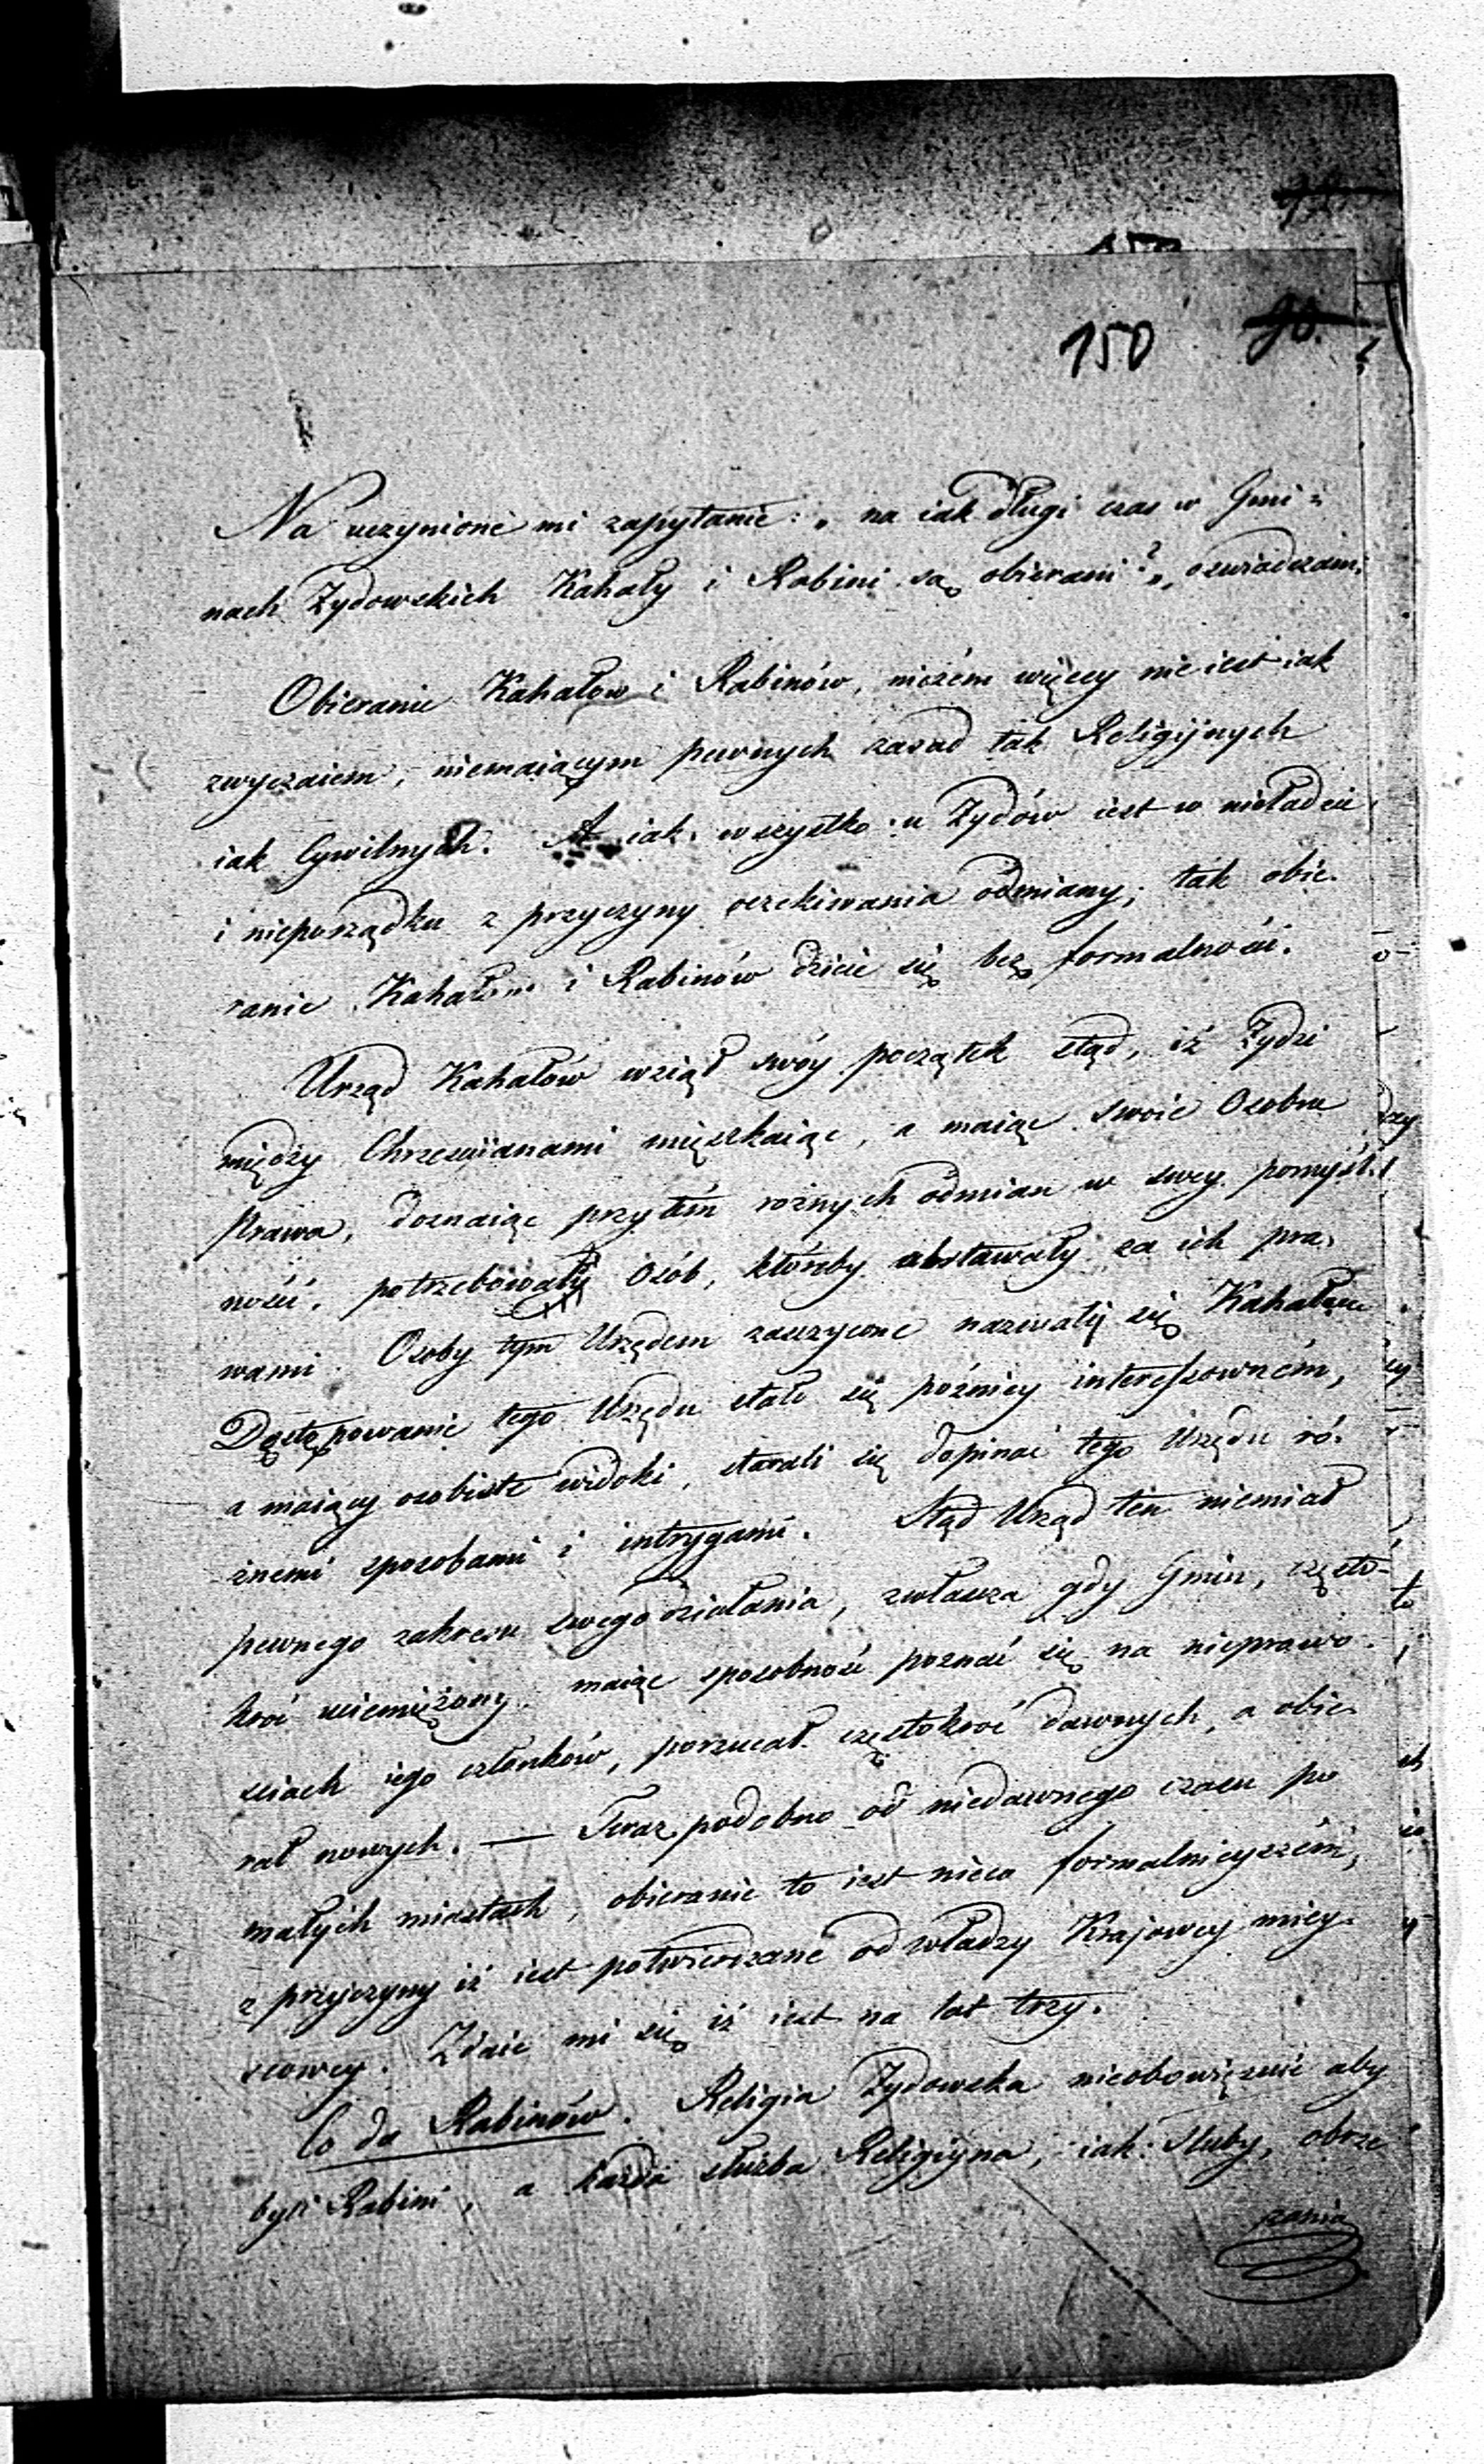 150 90.
Na uczynione mi zapytanie: „na iak długi czas w Gmi=
nach Żydowskich Kahały i Rabini są obierani?„ oswiadczam:
Obieranie Kahałow i Rabinów, niczém więcey nie iest iak
zwyczaiem, niemaiącym pewnych zasad tak Religijnych
iak Cywilnych. A iak wszystko u Żydów iest w nieładzie
i nieporządku z przyczyny oczekiwania odmiany, tak obie-
ranie Kahałow i Rabinów dzieie się bez formalności.
Urząd Kahałów wziął swóy początek ztąd, iż Żydzi
między Chrześcijanami mięszkaiąc, a maiąc swoie Osobne
Prawa, doznaiąc przytém rożnych odmian w swey pomyśl-
ności, potrzebowały Osób, któreby obstawały za ich pra-
wami. Osoby tym Urzędem zaszczycone nazwały się Kahałem
Dostępowanie tego Urzędu stało się pózniey interessowném,
a maiący osobiste widoki, starali się dopinać tego Urzędu ró-
żnemi sposobami i intrygami. Ztąd Urząd ten niemiał
pewnego zakresu swego działania, zwłaszcza gdy Gmin, często-
kroć uciemiężony, maiąc sposobność poznać się na nieprawo-
sciach iego członków, porzucał częstokroć dawnych, a obie-
rał nowych. — Teraz podobno od niedawnego czasu po
małych miastach, obieranie to iest nieco formalnieyszém,
z przyczyny iż iest potwierdzane od władzy Krajowey miey-
scowey. Zdaie mi się iż iest na lat trzy.
Co do Rabinów. Religia Żydowska nieobowięzuie aby
byli Rabini, a każda służba Religiyna, iak: Sluby, obrze
zania